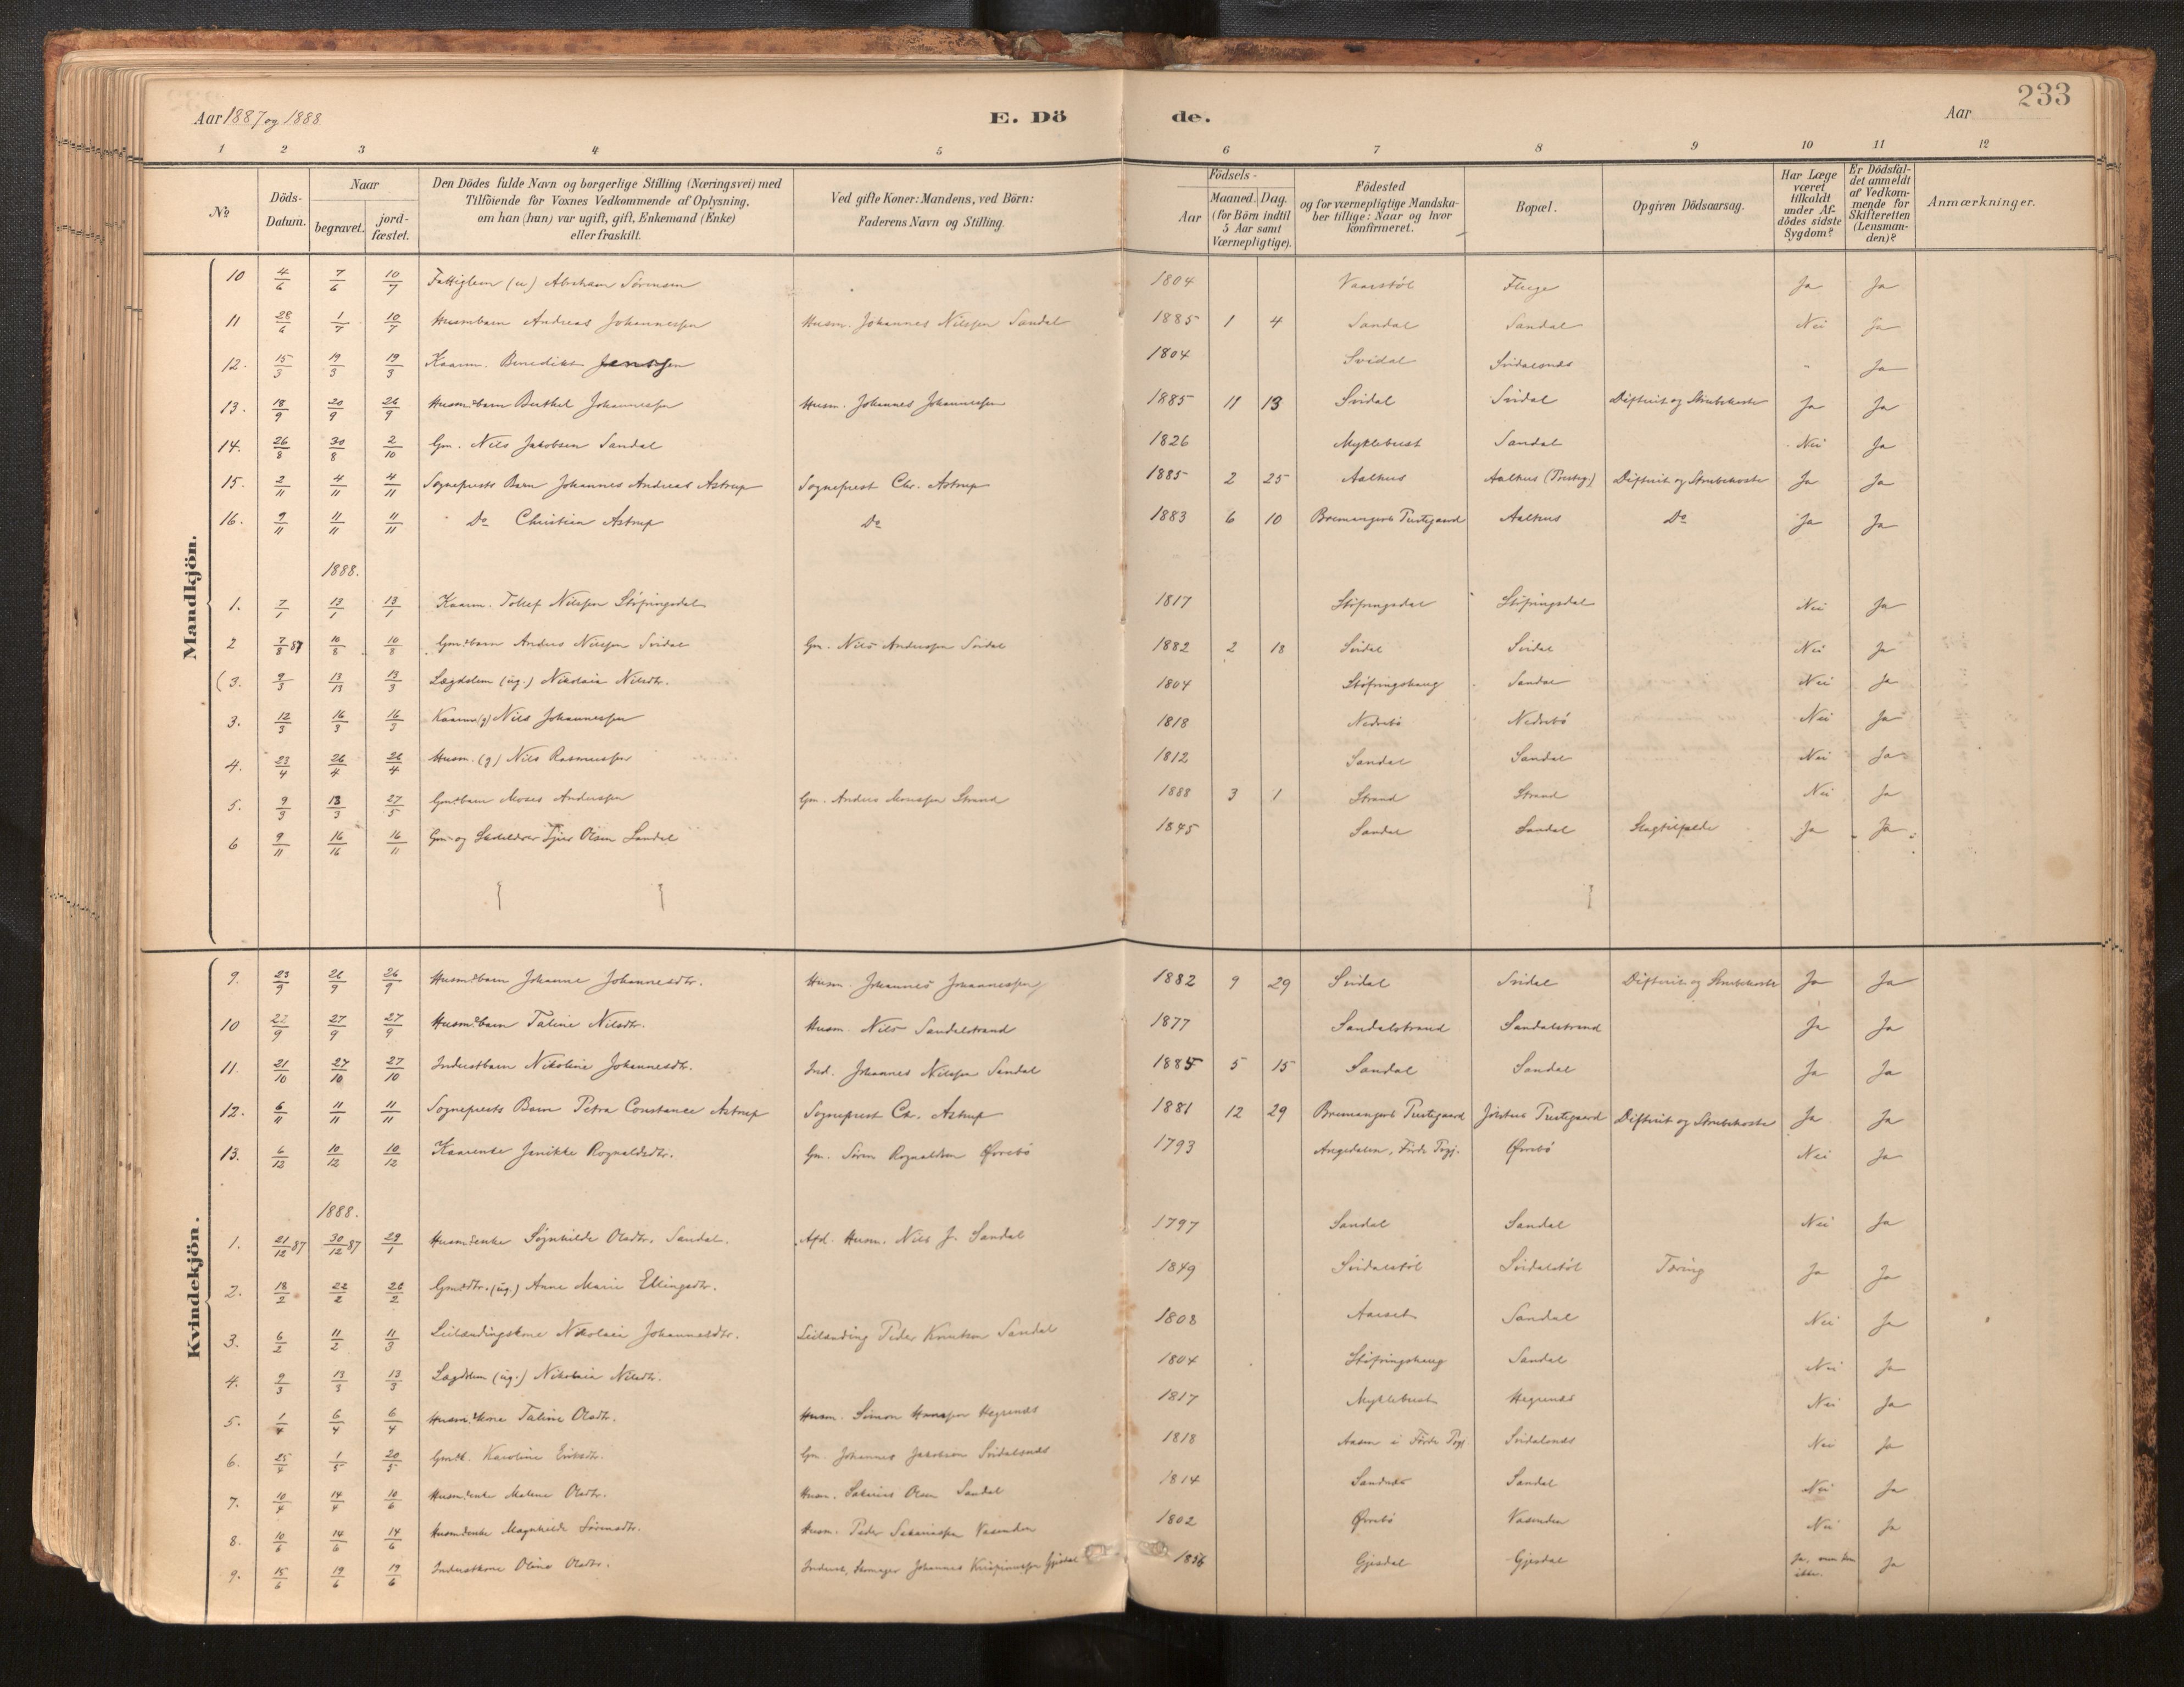 233
Aar 1887 og 1888 E. Dö de. Aar
1 2 3 4 5 6 7 8 9 10 11 12
No
Döds-Datum.
Naar
begravet.
jord-fæstet.
Den Dödes fulde Navn og borgerlige Stilling (Næringsvei) med
Tilföiende for Voxnes Vedkommende af Oplysning,
om han (hun) var ugift, gift, Enkemand (Enke)
eller fraskilt.
Ved gifte Koner: Mandens, ved Börn:
Faderens Navn og Stilling.
Födsels-
Aar
Maaned. Dag.
(for Börn indtil
5 Aar samt
Værnepligtige).
Födested
og for værnepligtige Mandska-
ber tillige: Naar og hvor
konfirmeret.
Bopæl.
Opgiven Dödsaarsag.
Har Læge
været
tilkaldt
under Af-
dödes sidste
Sygdom?
Er Dödsfal-
det anmeldt
af Vedkom-
mende for
Skifteretten
(Lensman-
den)?
Anmærkninger.
Mandkjön.
10 4/6 7/6 10/7 Fattiglem (u) Abraham Sörensen 1804 Vaarstöl Fluge Ja Ja
11 28/6 1/7 10/7 Husmbarn Andreas Johannessen Husm. Johannes Nilssen Sandal 1885 1 4 Sandal Sandal Nei Ja
12. 15/3 19/3 19/3 Kaarm. Benedikt Jenssen 1804 Svidal Svidalsnes " Ja
13. 18/9 20/9 26/9 Husmdbarn Berthel Johannessen Husm. Johannes Johannessen 1885 11 13 Svidal Svidal Difterit og Strubehoste Ja Ja
14. 26/8 30/8 2/10 Gm. Nils Jakobsen Sandal 1826 Myklebust Sandal Nei Ja
15. 2/11 4/11 4/11 Sogneprests Barn Johannes Andreas Astrup Sogneprest Chr. Astrup 1885 2 25 Aalhus Aalhus (Presteg.) Difterit og Strubehoste Ja Ja
16. 9/11 11/11 11/11 Do Christian Astrup Do 1883 6 10 Bremangers Prestegaard Aalhus Do Ja Ja
1888.
1. 7/1 13/1 13/1 Kaarm. Tollef Nilssen Stöfringsdal 1817 Stöfringsdal Stöfringsdal Nei Ja
2 7/8 87 10/8 10/8 Gmdbarn Anders Nilssen Svidal Gm. Nils Anderssen Svidal 1882 2 18 Svidal Svidal Nei Ja
(3. 9/3 13/13 13/3 Lægdslem (ug.) Nikolaia Nilsdtr. 1804 Stöfringshaug Sandal Nei Ja
3. 12/3 16/3 16/3 Kaarm (g) Nils Johannessen 1818 Nedrebö Nedrebö Nei Ja
4. 23/4 26/4 26/4 Husm. (g) Nils Rasmussen 1812 Sandal Sandal Nei Ja
5. 9/3 13/3 27/5 Gmdbarn Moses Anderssen Gm. Anders Monssen Strand 1888 3 1 Strand Strand Nei Ja
6 9/11 16/16 16/11 Gm og Olsen Sandal 1845 Sandal Sandal Slagtilfælde Ja Ja
Kvindekjön.
9. 23/9 26/9 26/9 Husmdbarn Johanne Johannesdtr. Husm. Johannes Johannessen 1882 9 29 Svidal Svidal Difterit og Strubehoste Ja Ja
10 22/9 27/9 27/9 Husmdbarn Taline Nilsdtr. Husm. Nils Sandalstrand 1877 Sandalstrand Sandalstrand Ja Ja
11. 21/10 27/10 27/10 Inderstbarn Nikoline Johannesdtr. Ind. Johannes Nilssen Sandal 1885 5 15 Sandal Sandal Ja Ja
12. 6/11 11/11 11/11 Sogneprests Barn Petra Constance Astrup Sogneprest Ch. Astrup 1881 12 29 Bremangers Prestegaard Jölsters Prestegaard Difterit og Strubehoste Ja Ja
13. 6/12 10/12 10/12 Kaarenke Jenikke Rognaldsdtr. Gm. Sören Rognaldsen Øvrebö 1793 Angedalen, Förde Pgj. Øvrebö Nei Ja
1888.
1. 21/12 87 30/12 87 29/1 Husmdenke Søgnhilde Olsdtr. Sandal. Afd. Husm. Nils J. Sandal 1797 Sandal Sandal Nei Ja
2. 18/2 22/2 22/2 Gmdtr. (ug.) Anne Marie Ellingsdtr. 1849 Svidalstöl Svidalstöl Tæring Ja Ja
3. 6/2 11/2 11/3 Leilændingskone Nikolaia Johannesdtr. Leilænding Peder Knutsen Sandal 1808 Aarset Sandal Nei Ja
4. 9/3 13/3 13/3 Lægdslem (ug.) Nikolaia Nilsdtr. 1804 Stöfringshaug Sandal Nei Ja
5. 1/4 6/4 6/4 Husmdkone Taline Olsdtr. Husm. Simon Hanssen Hegrenes 1817 Myklebust Hegrenes Nei Ja
6. 25/4 1/5 20/5 Gmdk. Karoline Eriksdtr. Gm. Johannes Jakobsen Svidalsnes 1818 Aasen i Förde Pgj Svidalsnes Nei Ja
7. 10/4 14/4 10/6 Husmdenke Malene Olsdtr. Husm. Sakarias Olsen Sandal 1814 Sandnes Sandal Nei Ja
8. 10/6 14/6 14/6 Husmdenke Magnhilde Sörensdtr. Husm. Peder Sakariassen Vasenden 1802 Øvrebö Vasenden Nei Ja
9. 15/6 19/6 19/6 Inderstkone Oline Olsdtr. Inderst, Skomager Johannes Krispinussen Gjesdal 1856 Gjesdal Gjesdal Ja, men kom ikke. Ja